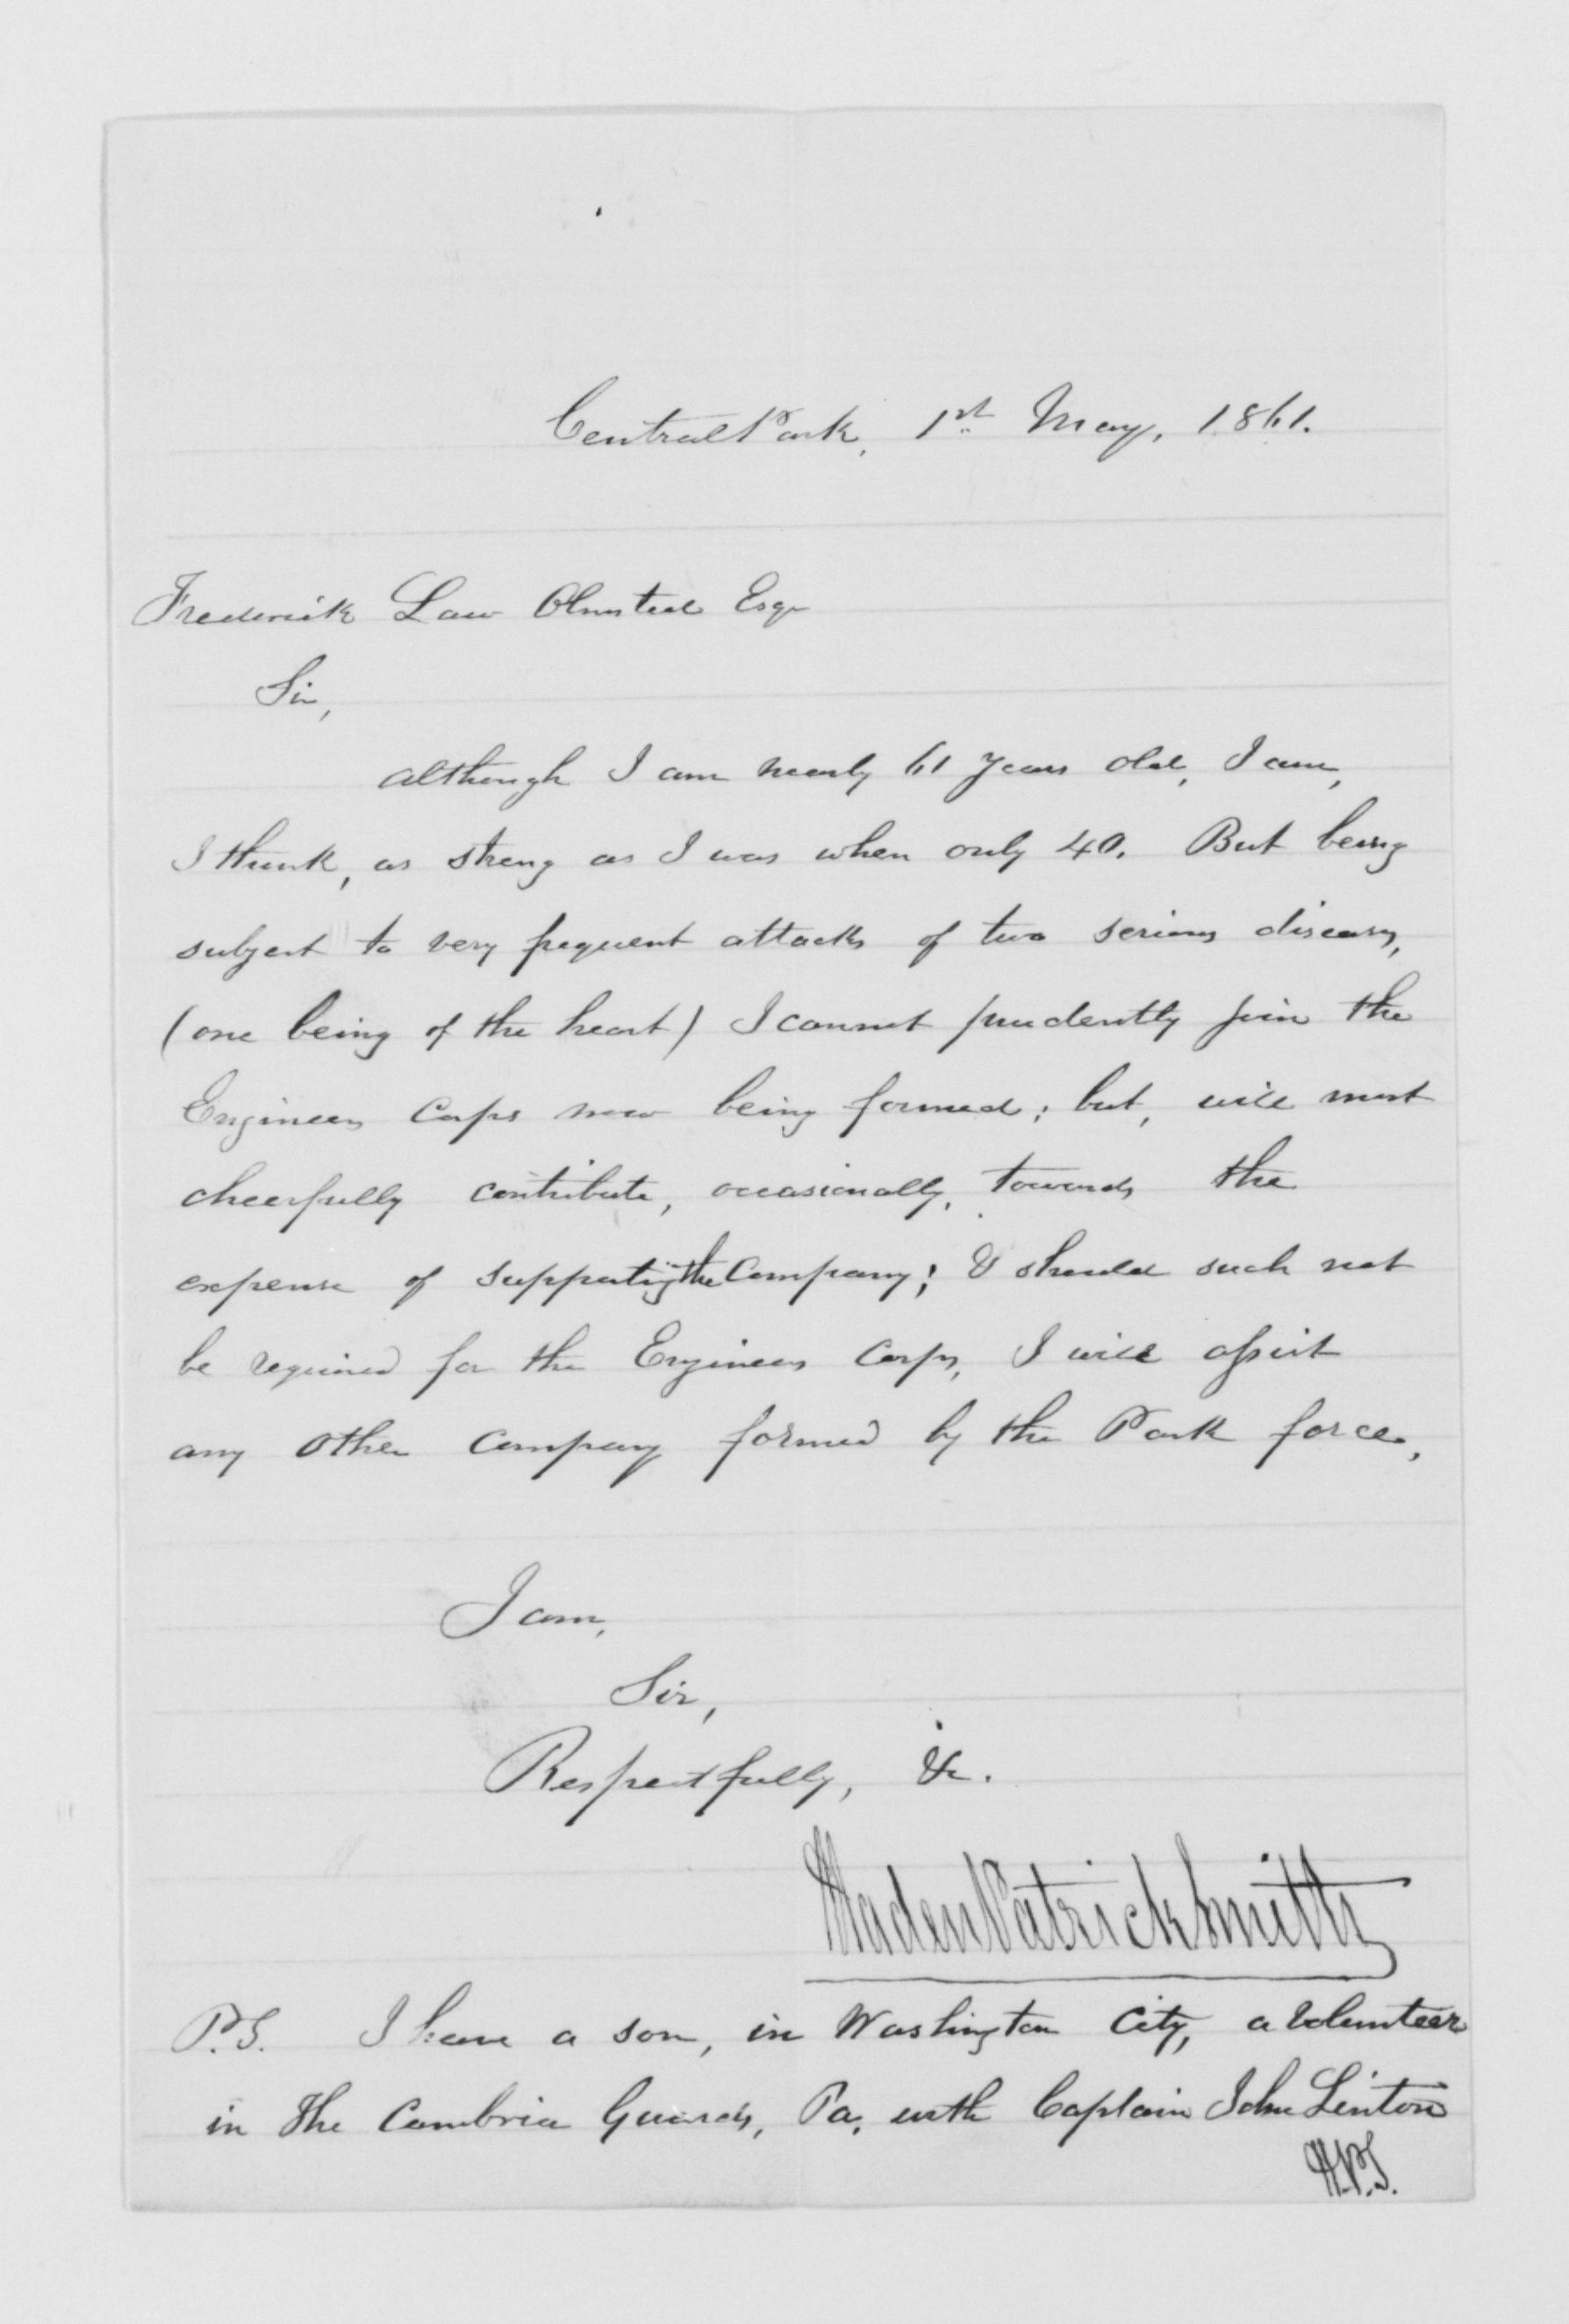 Central Park, 1st May, 1861.
Frederick Law Olmsted Esqr
Sir,
Although I am nearly 61 years old, I am,
I think, as strong as I was when only 40. But being
subject to very frequent attacks of two serious diseases,
(one being of the heart) I cannot prudently join the
Engineers Corps now being formed; but, will most
cheerfully contribute, occasionally, towards the
expense of supporting the Company; & should such not
be required for the Engineers Corps, I will assist
any other Company formed by the Park forces,
I am,
Sir,
Respectfully, &c.
Patrick Smith
P.S. I have a son, in Washington City, a Volunteer
in the Cambria Guards, Pa, with Captain John Linton
P.S.